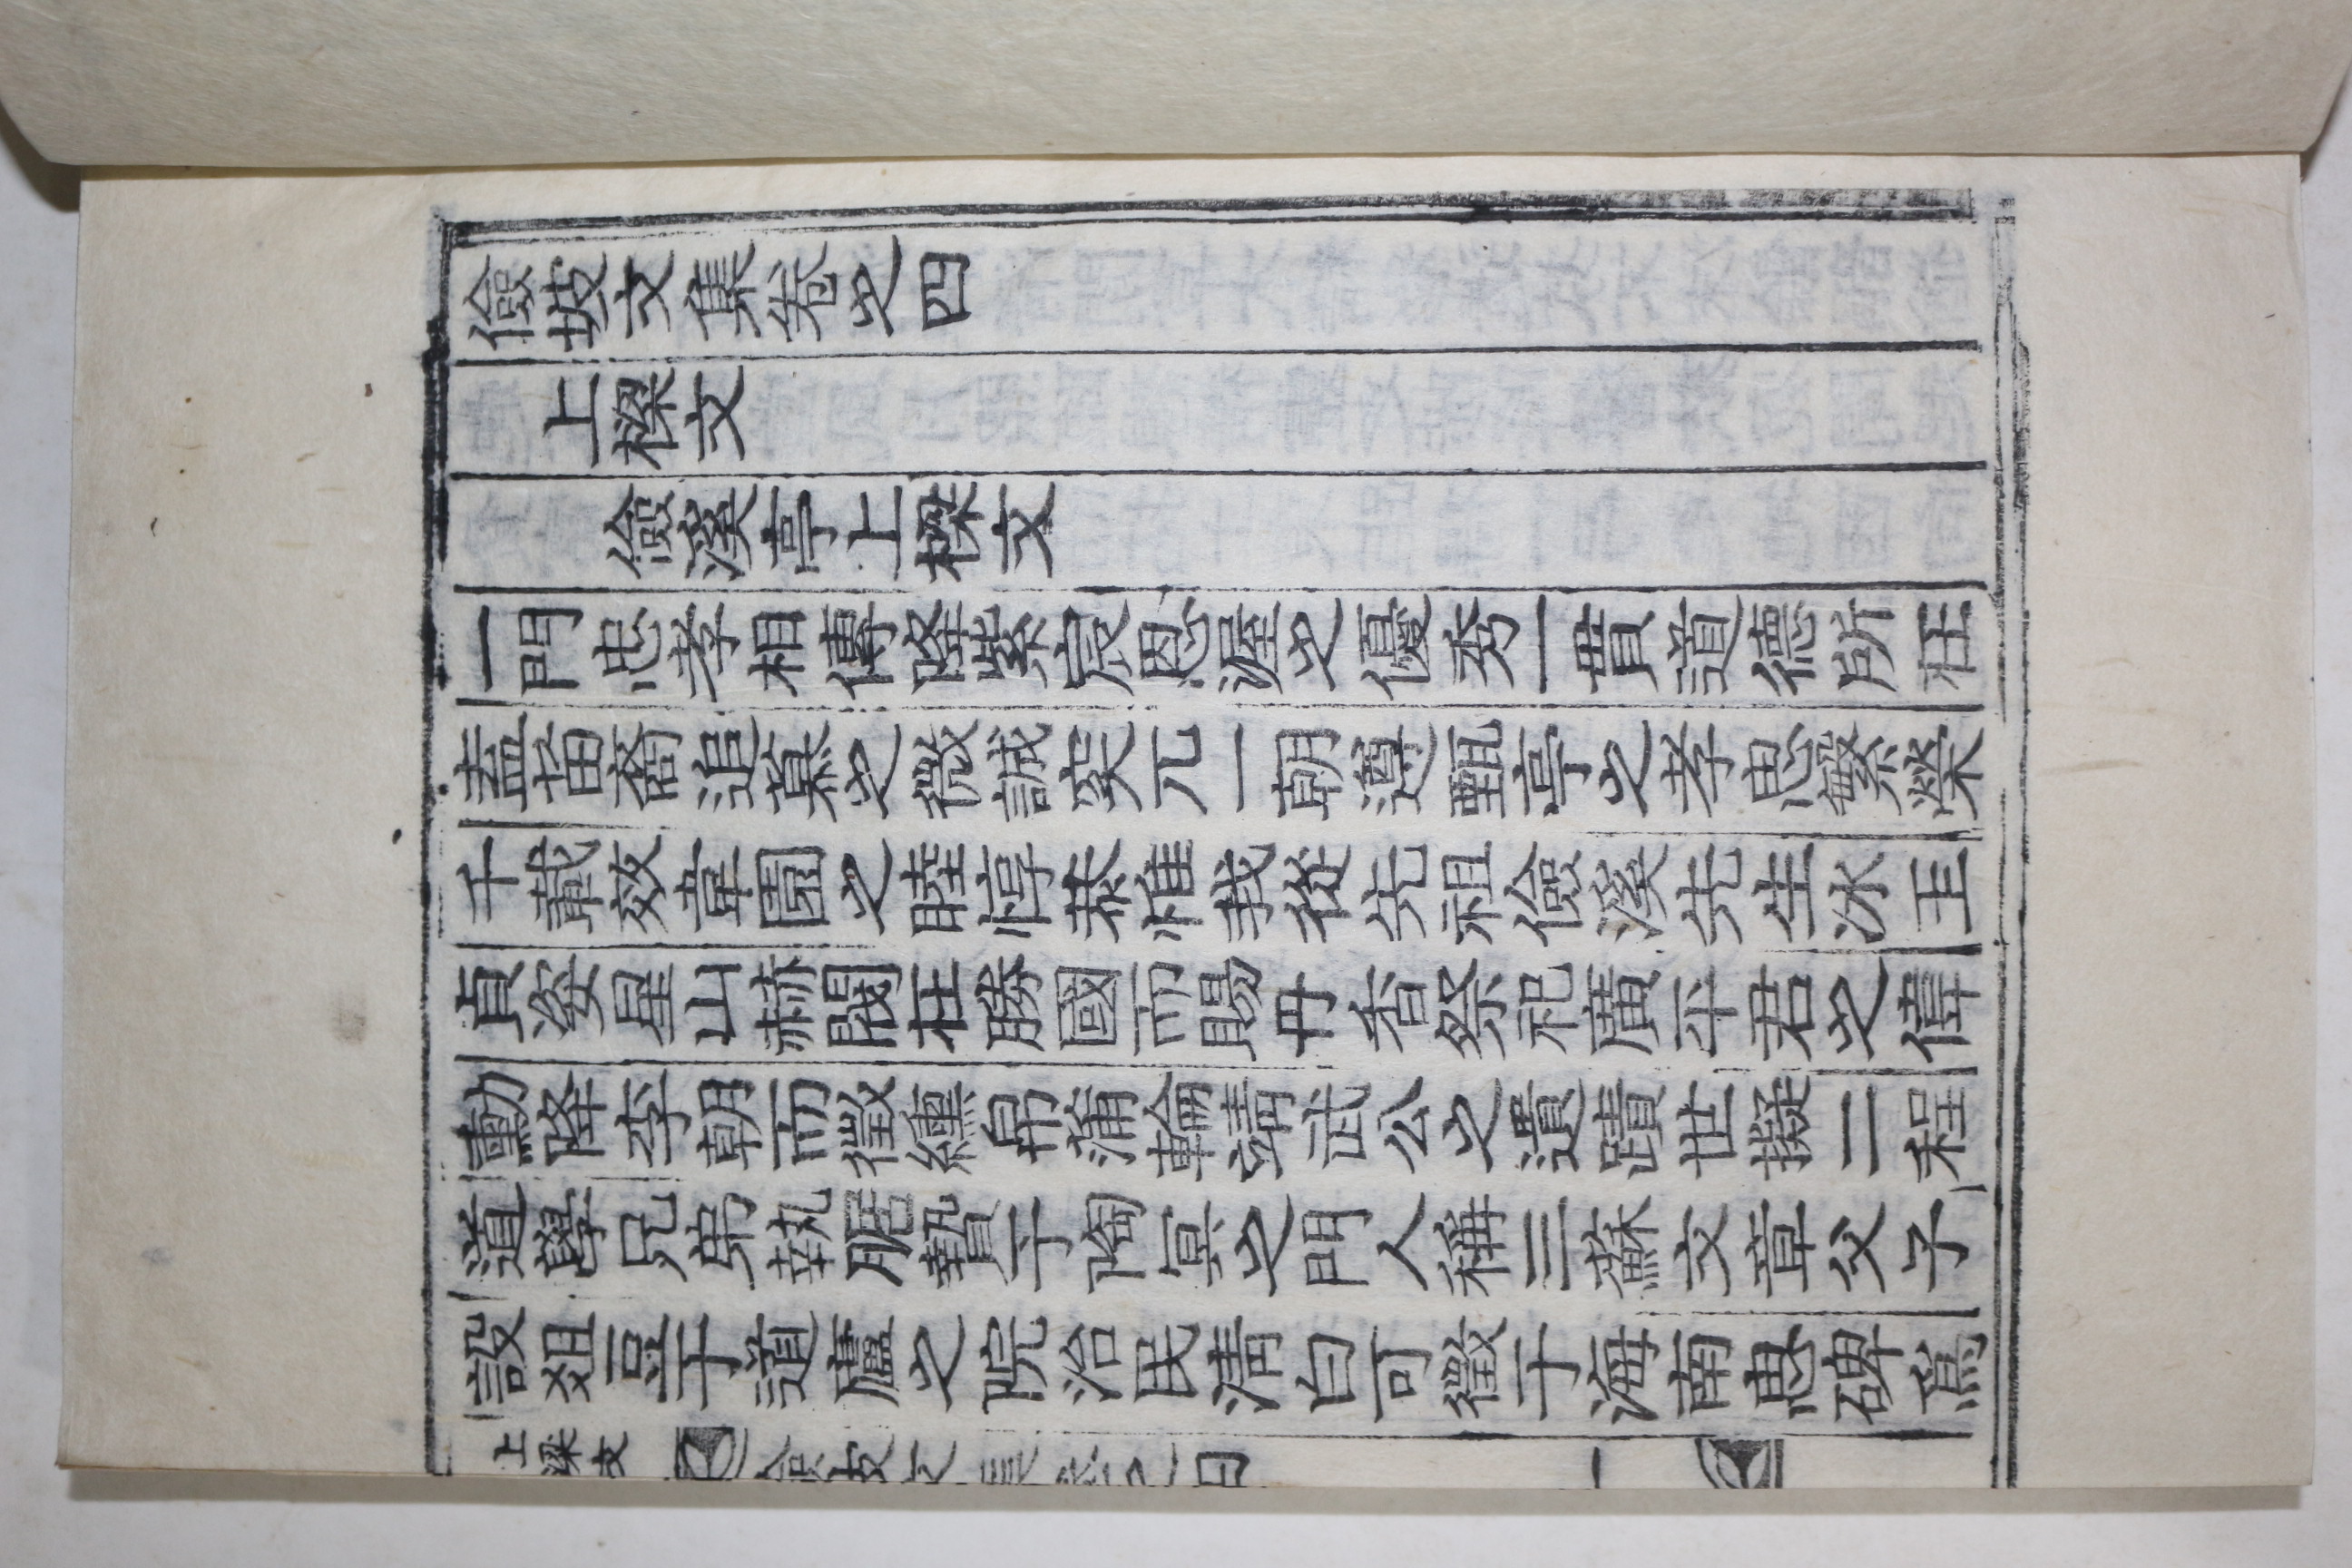 儉坡文集卷之四
上樑文
儉溪亭上樑文
一門忠孝相傳降紫宸恩渥之優秀一貫道德所在
盍苗裔追慕之微誠突兀一朝遵甄亭之孝思繁榮
千載效韋園之睦惇恭惟我從先祖儉溪先生冰玉
貞姿星山赫閥在勝國而賜丹香祭祀廣平君之偉
勳降李朝而徵纁帛蒲輪靖武公之遺蹟世擬二程
道學兄弟執腒贄于陶冥之門人稱三蘇文章父子
設俎豆于道廬之院治民淸白可徵于海南惠碑爲
上梁文
儉坡文集卷之四
一